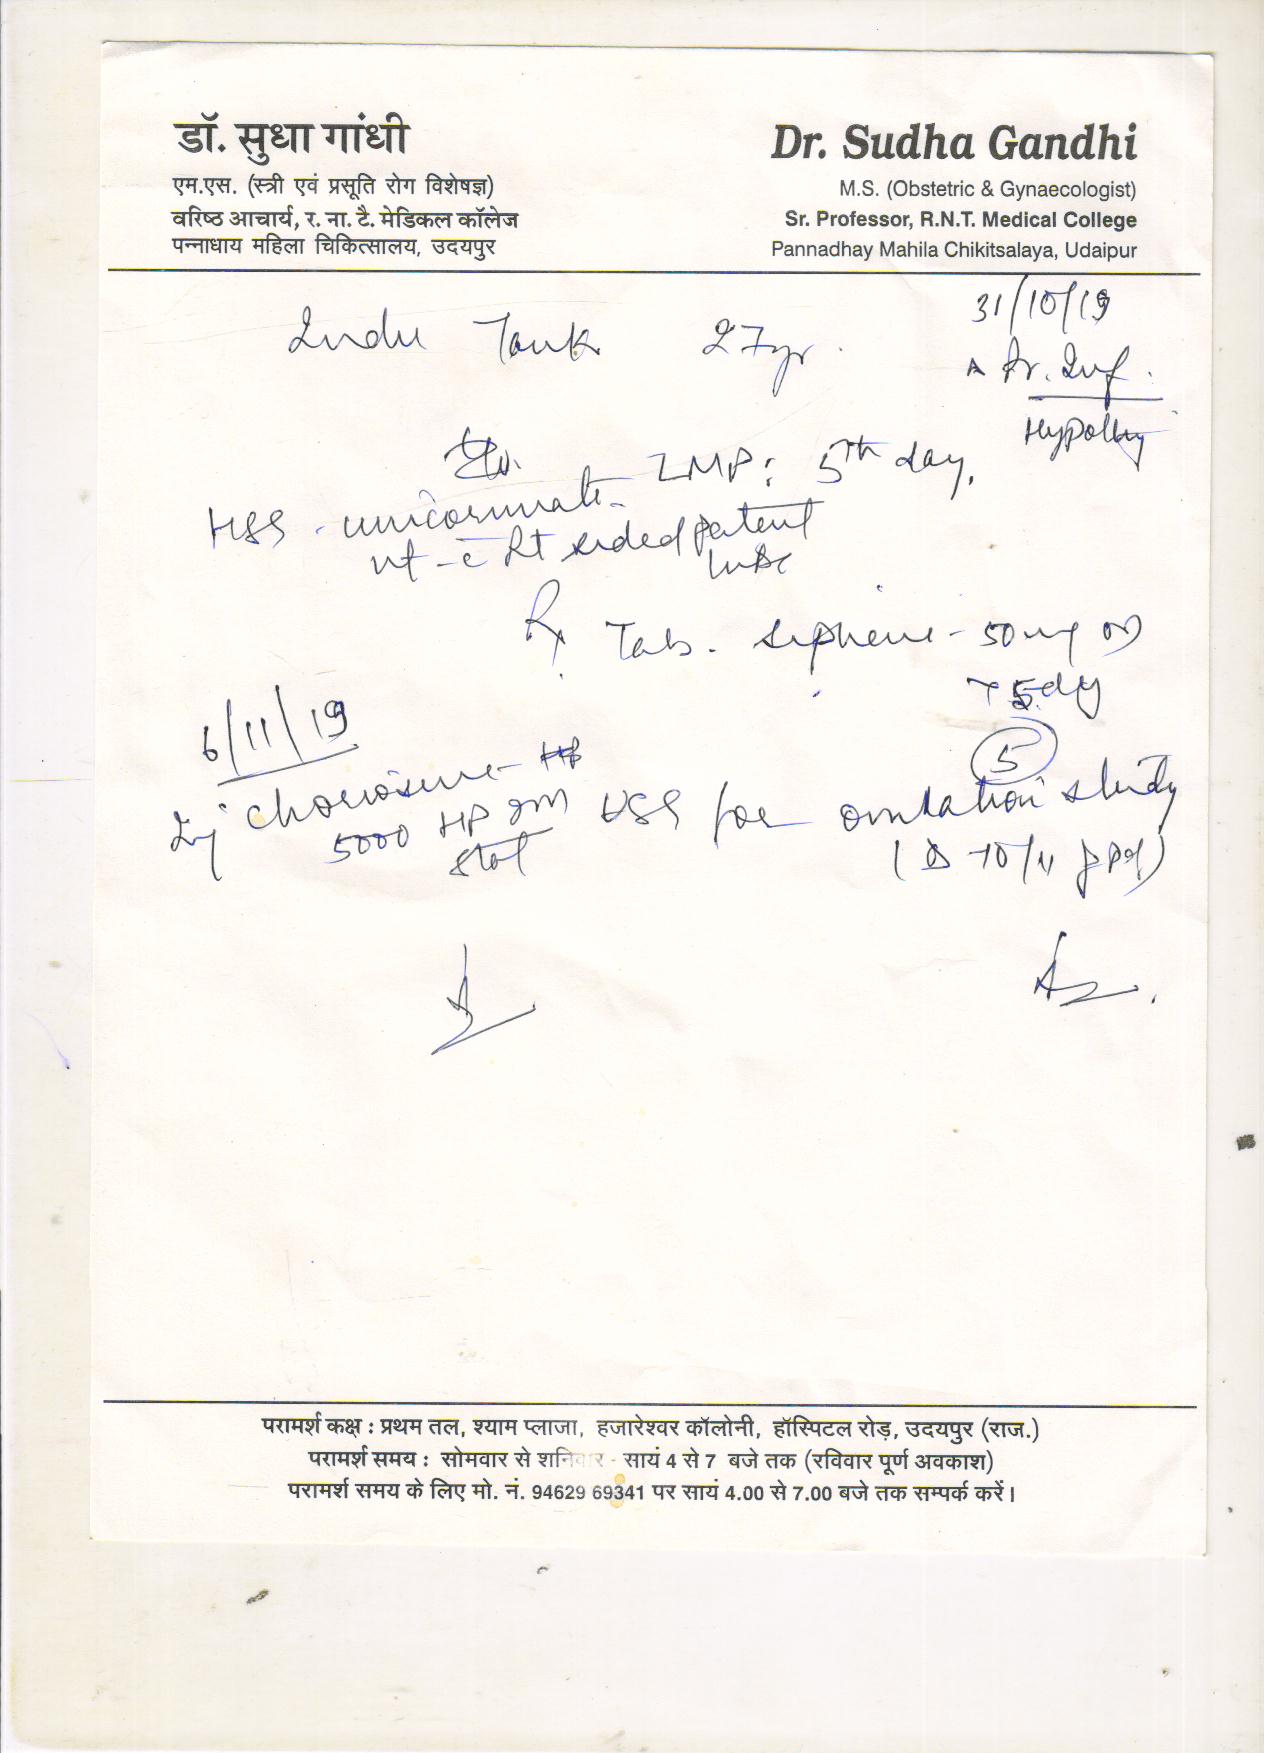 डॉ. सुधा गांधी
एम.एस. (स्त्री एवं प्रसूति रोग विशेषज्ञ)
वरिष्ठ आचार्य, र. ना. टै. मेडिकल कॉलेज
पन्नाधाय महिला चिकित्सालय, उदयपुर
Dr. Sudha Gandhi
M.S. (Obstetric & Gynaecologist)
Sr. Professor, R.N.T. Medical College
Pannadhay Mahila Chikitsalaya, Udaipur
31/10/19
Indu Tank 27yr.
Pr. Inf.
LMP: 5th day.
HSG - unicornuate
ut - c̄ Rt sided patent
tube
Rx Tab. - 50mg OD
5 day
5
6/11/19
Inj
5000 HP IM
stat
USG for ovulation study
परामर्श कक्ष : प्रथम तल, श्याम प्लाजा, हजारेश्वर कॉलोनी, हॉस्पिटल रोड़, उदयपुर (राज.)
परामर्श समय : सोमवार से शनिवार - सायं 4 से 7 बजे तक (रविवार पूर्ण अवकाश)
परामर्श समय के लिए मो. नं. 94629 69341 पर सायं 4.00 से 7.00 बजे तक सम्पर्क करें।